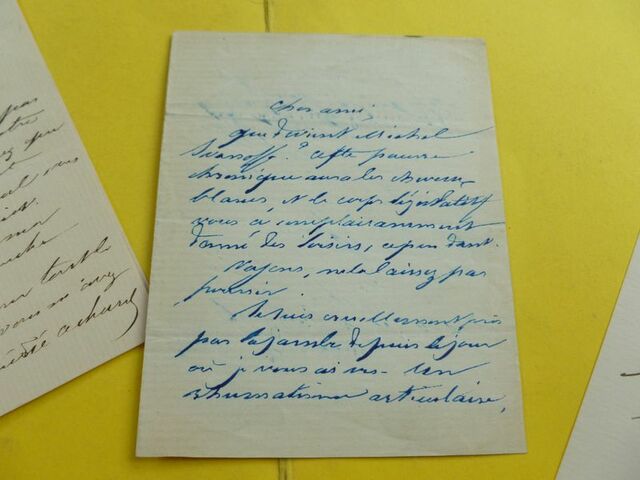 cher ami,
que devient Michel
Ivanoff ? cette pauvre
chronique aura les cheveux
blancs, et le corps législatif
vous a complaisamment
donné des loisirs, cependant.
Voyons, ne la laissez pas
pourrir
Je suis cruellement pris
par la jambe depuis le jour
où je vous ai vu - un
rhumatisme articulaire,
pas
que
vous
vous m'avez
achard